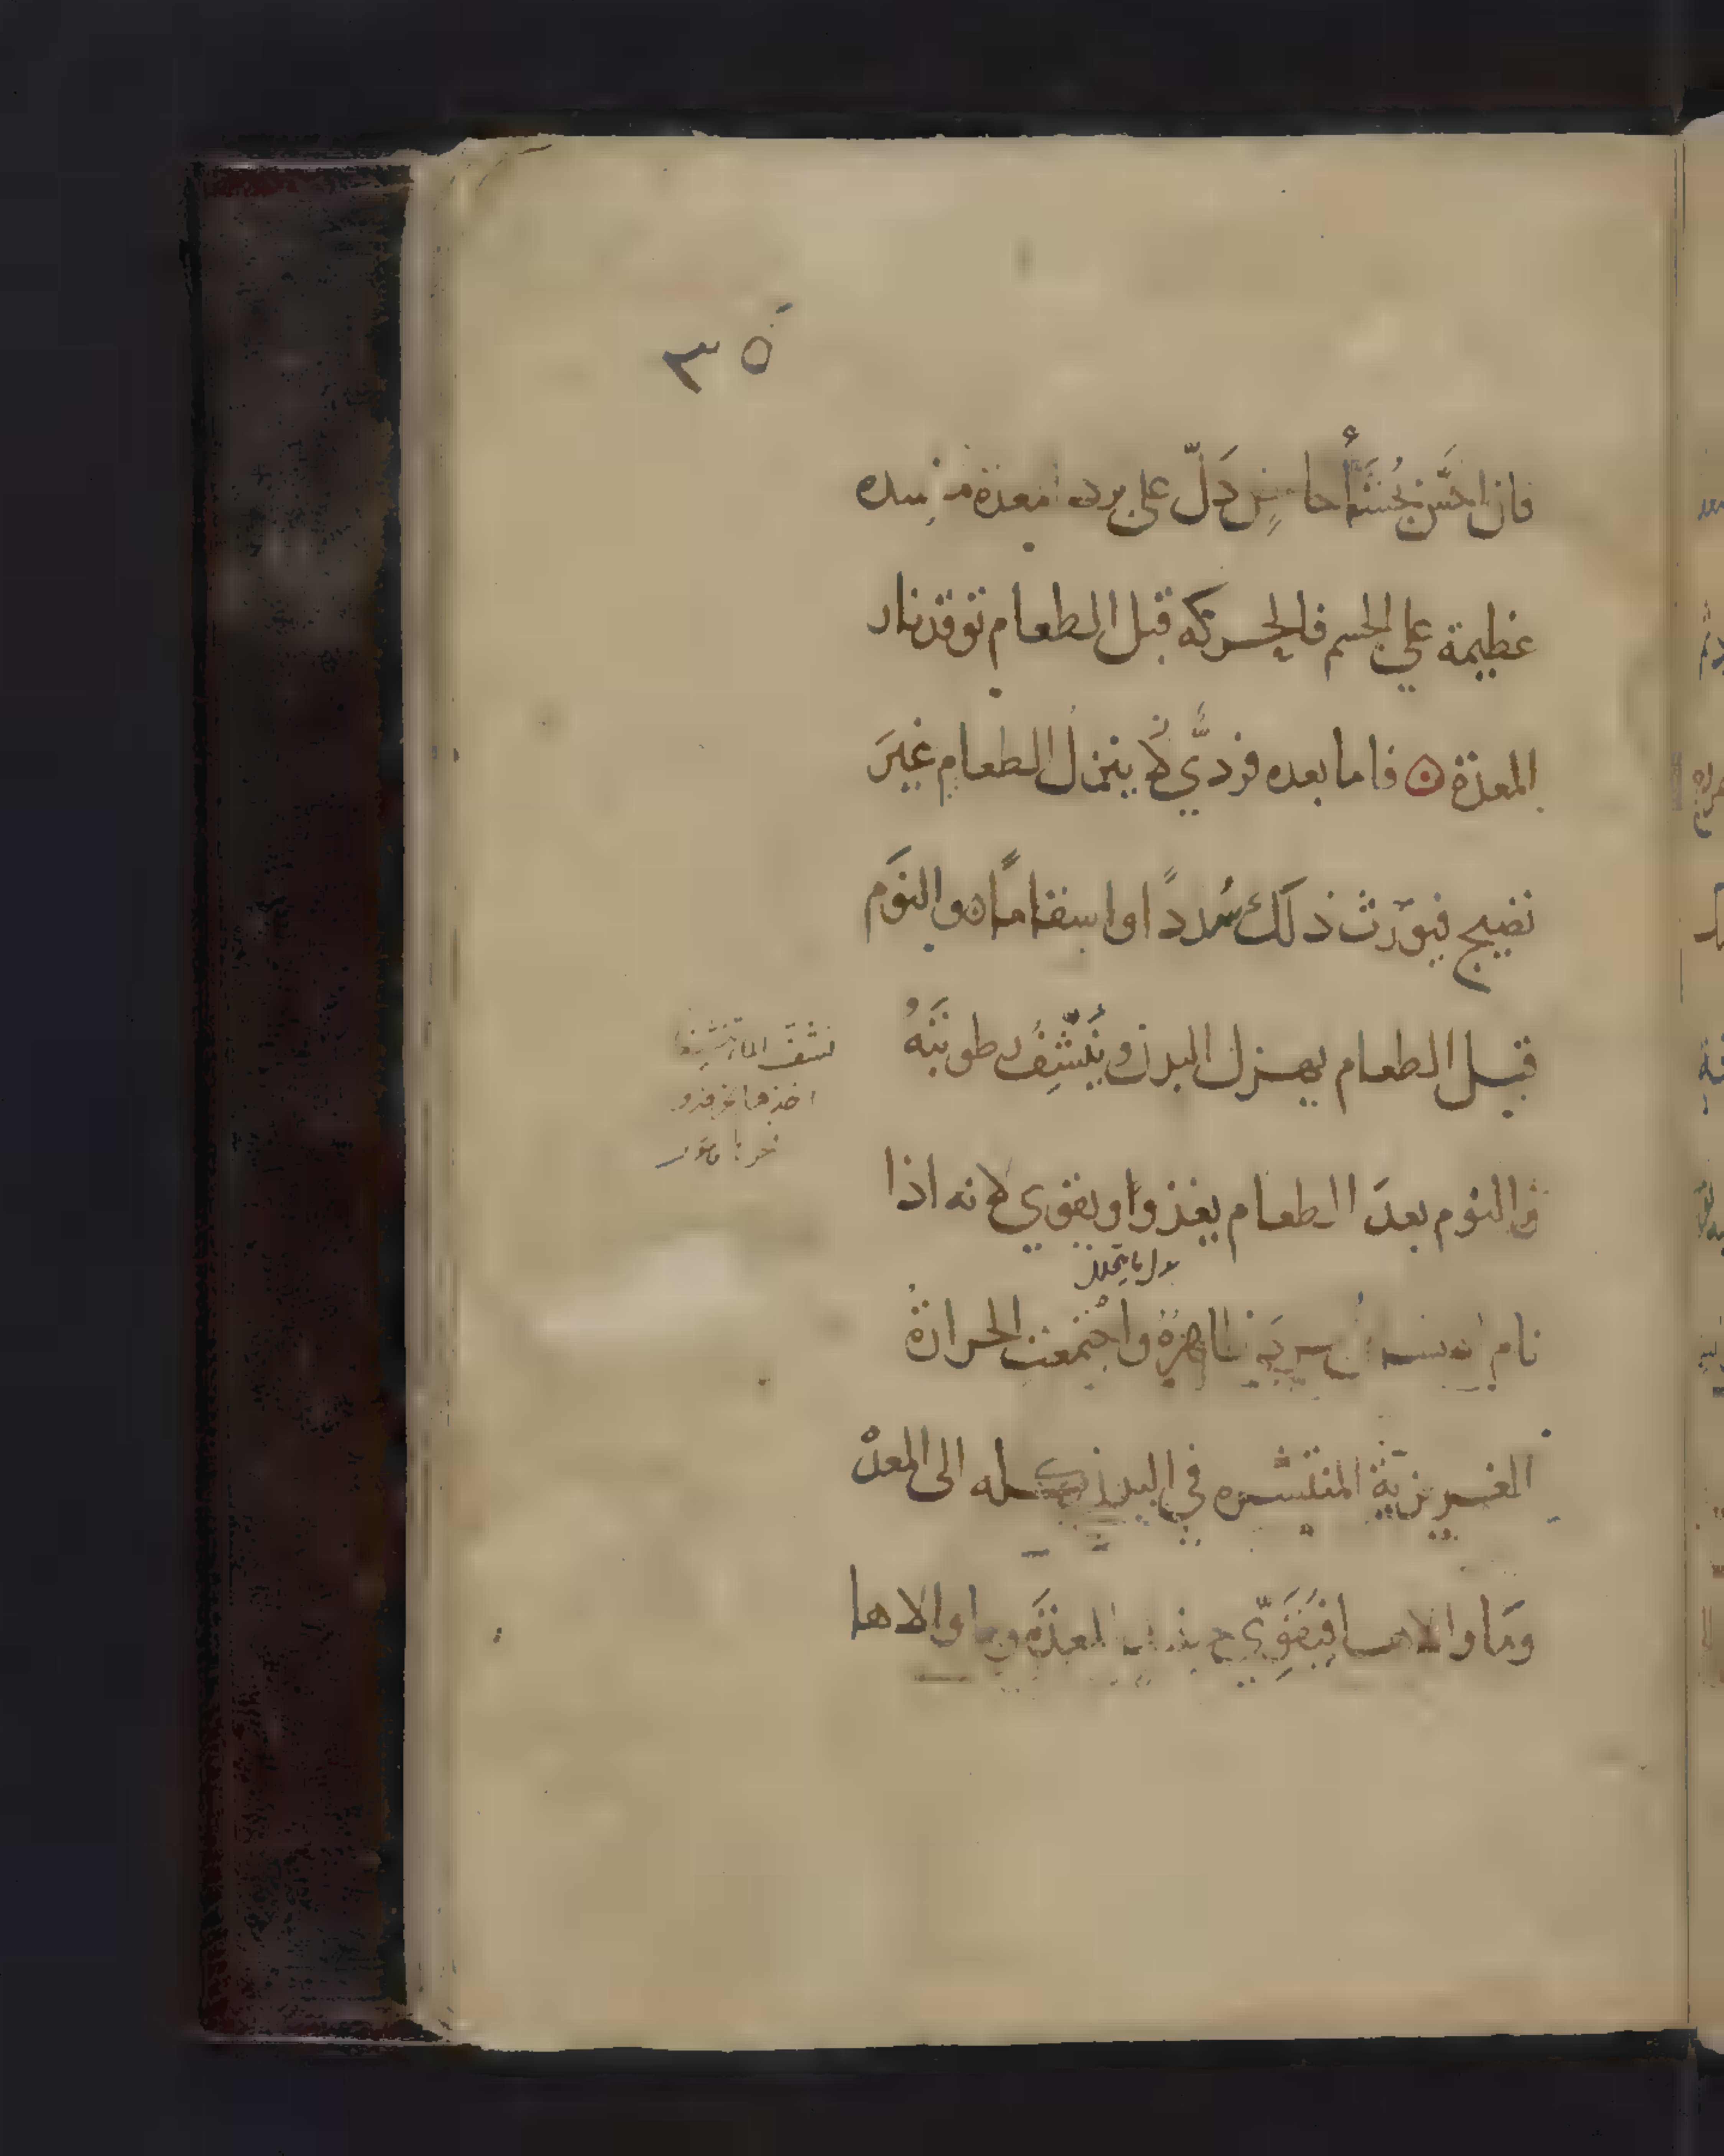 ٣٥
فان احسّ بجُشَأً حامضٍ دَلّ على برد المعدة مفسده
عظيمة علي الجسم فالحركه قبل الطعام توقد نار
المعدة ۞ فاما بعده فرديّ لأ ينزل الطعام غيرَ
نضيج فيورّث ذلك سُددًا واسقامًا ه والنوَم
قبل الطعام يهزل البدن ويُنَشِّفُ رطوبتَهُ
والنوم بعدَ الطعام يغذوا ويقوي لانه اذا
نام الانسان ظاهرهُ واجْتمعت الحرارةُ
الغريزيّة المنتشره في البدن كله الى المعدْ
وما والاها فيَقَوّي المعدَة وما والاها
نشف الما